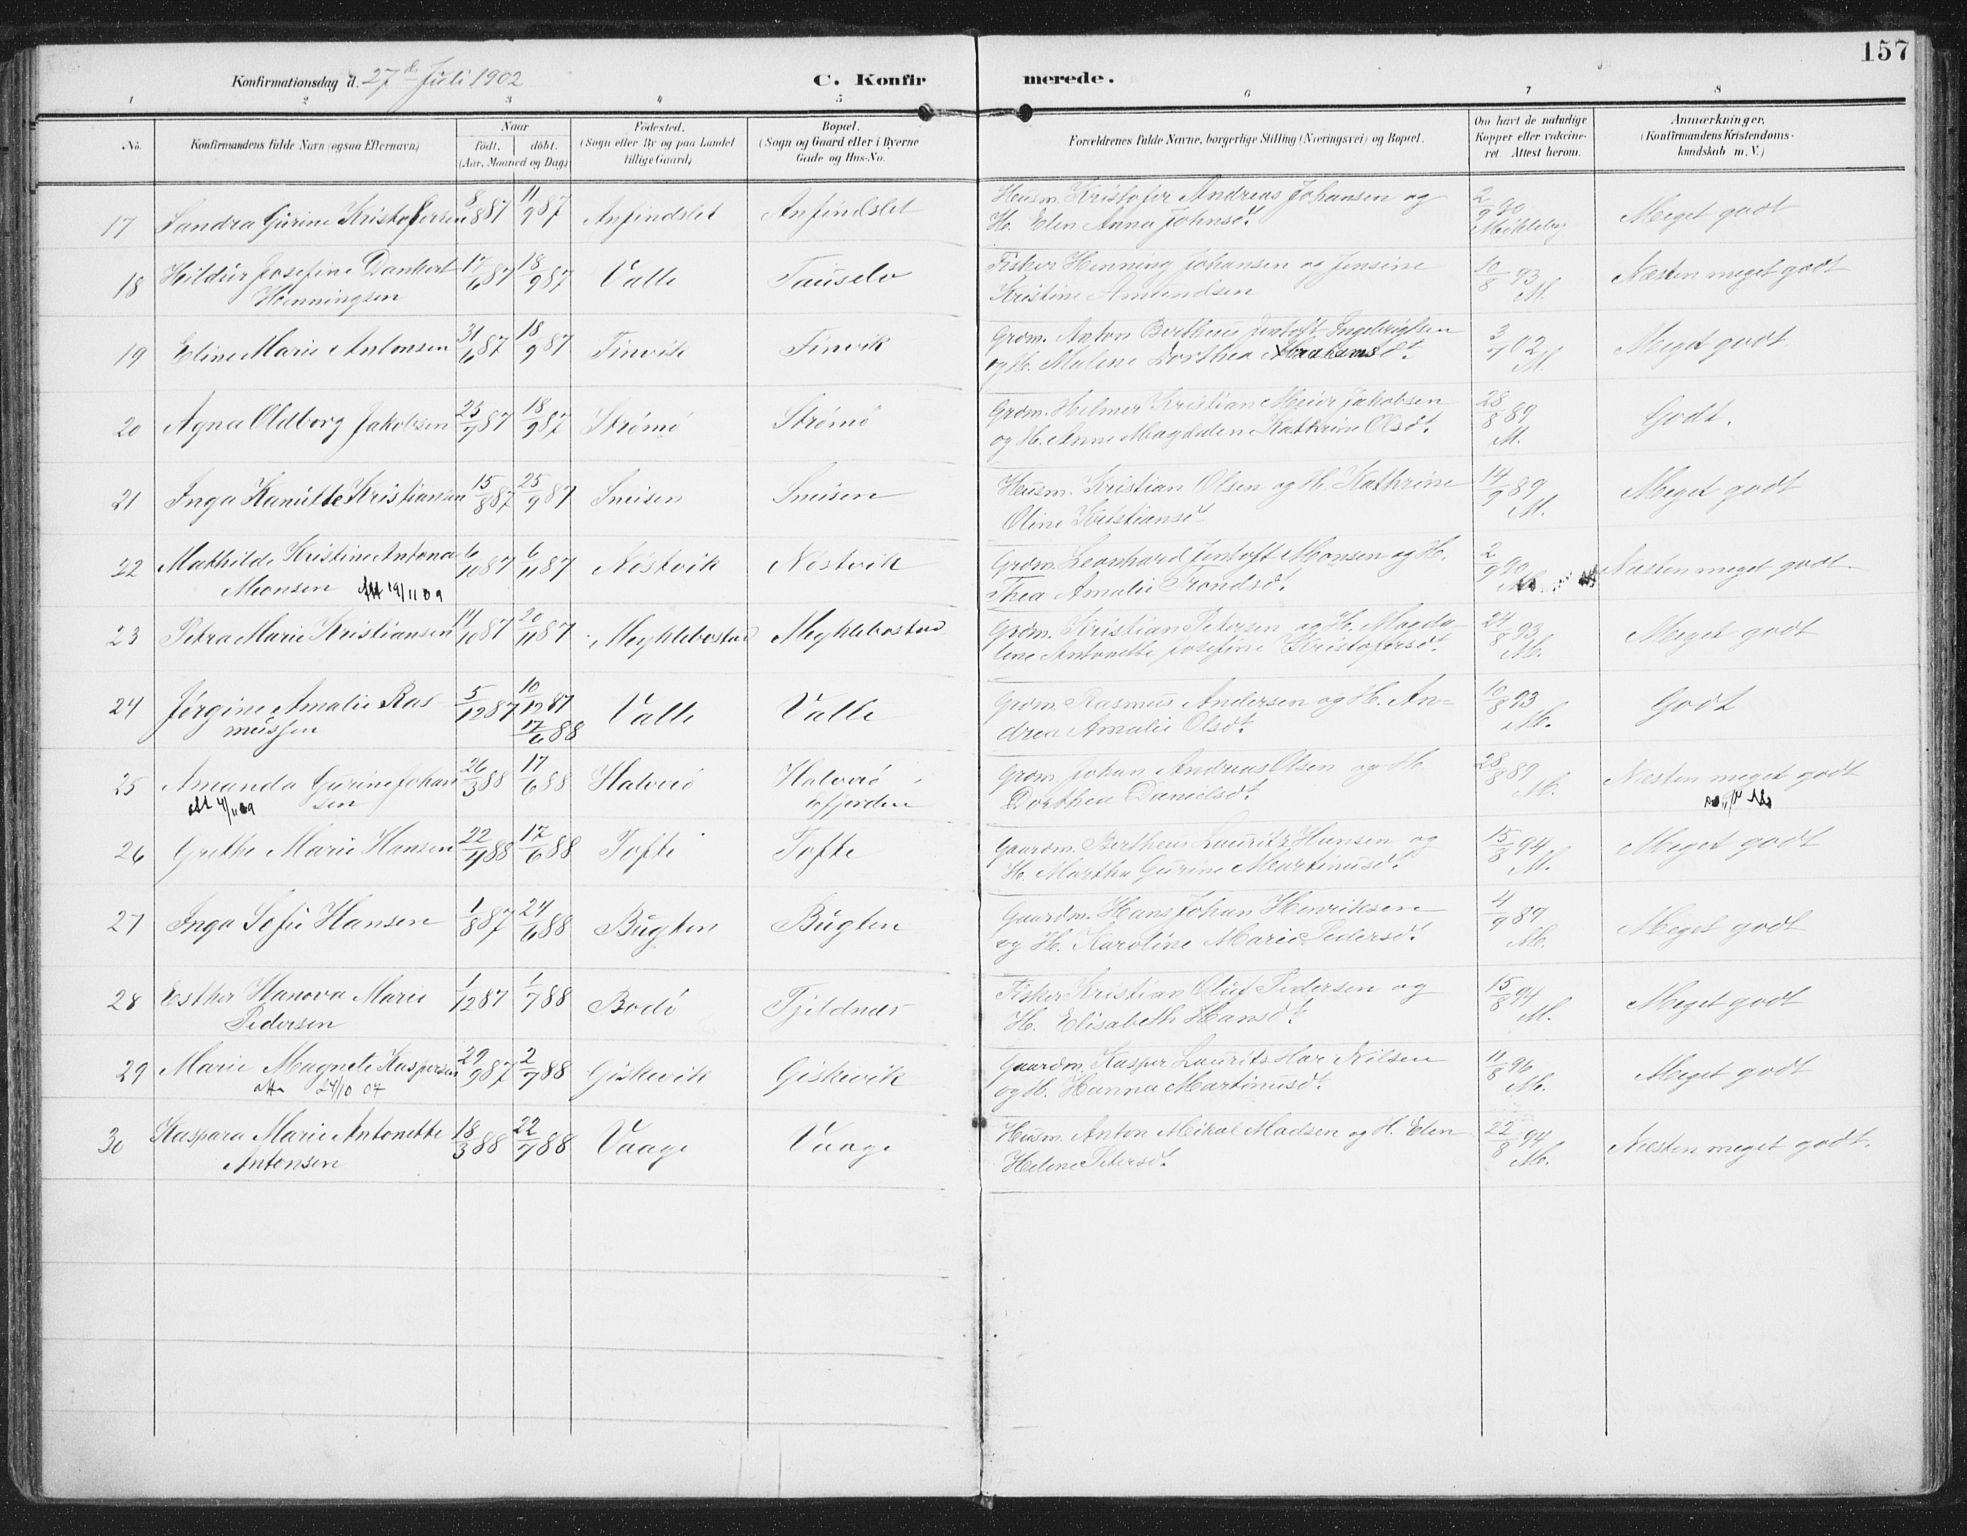 157
Konfirmationsdag d. 27de Juli 1902
C. Konfirmerede.
1 2 3 4 5 6 7 8
No.
Konfirmandens fulde Navn (ogsaa Efternavn)
Naar
født. døbt.
(Aar, Maaned og Dag)
Fødested.
(Sogn eller By og paa Landet tillige Gaard)
Bopæl.
(Sogn og Gaard eller i Byerne Gade og Hus-No.
Forældrenes fulde Navne, borgerlige Stilling (Næringsvei) og Bopæl.
Om havt de naturlige Kopper eller vakcineret. Attest herom.
Anmærkninger.
(Konfirmandens Kristendomskundskab m. V.)
17 Sandra Gurine Kristofersen 8/8 87 11/9 87 Anfindslet Anfindslet Husm. Kristofer Andreas Johansen og 2/9 90 Meget godt
H. Elen Anna Johnsdt.
18 Hildur Josefine Dankert 17/6 87 18/9 87 Valle Fiskr Henning Johansen og Jensine 10/8 93 Næsten meget godt
Henningsen Kristine Amundsen M.
19 Eline Marie Antonsen 31/6 87 18/9 87 Finvik Finvik Grdm. Anton Bertheus Jentoft Ingebrigtsen 3/7 02 Meget godt
og H. Malene Dorthea Abrahamsdt. M.
20 Agna Oldborg Jakobsen 25/7 87 18/9 87 Strømø Strømø Grdm. Helmer Kristian Meier Jakobsen 28/8 89 Godt.
og H. Anne Magdalen Kathrine Olsdt. M.
21 Inga Kanutte Kristiansen 15/8 87 25/9 87 Sneisen Sneisen Husm. Kristian Olsen og H. Kathrine 14/9 89 Meget godt
Oline Kristiansdt M.
22 Mathilde Kristine Antona 6/10 87 6/11 87 Nöstvik Nöstvik Grdm. Leonhard Jentoft Monsen og H. 2/9 90 Næsten meget godt.
Monsen Att 19/11 09 Thea Amalie Trondsdt.
23 Petra Marie Kristiansen 14/10 87 20/11 87 Meyklebostad Meyklebostad Grdm. Kristian Petersen og H. Magda- 24/8 93 Meget godt
lene Antonette Josefine Kristofersdt. M.
24 Jørgine Amalie Ras- 5/12 87 10/12 87 Valle Valle Grdm. Rasmus Andersen og H. An- 10/8 93 Godt
mussen 17/6 88 drea Amalie Olsdt. M.
25 Amanda Gurine Johan 26/3 88 17/6 88 Halvø Grdm. Johan Andreas Olsen og H. 28/8 89 Næsten meget godt
sen fjorden Dorthea Danielsdt. M.
26 Grethe Marie Hansen 22/4 88 17/6 88 Tofte Tofte Gaardm. Bertheus Lauritz Hansen og 15/8 94 Meget godt
H. Martha Gurine Martinusdt. M.
27 Inga Sofie Hansen 1/8 87 24/6 88 Bugten Bugten Gaardm. Hans Johan Henriksen 4/9 89 Meget godt
og H. Karoline Marie Pedersdt. M.
28 Esther Hanova Marie 1/12 87 1/7 88 Bodö Tjeldnæs Fisker Kristian Oluf Pedersen og 15/8 94 Meget godt
Pedersen H. Elisabeth Hansdt. M.
29 Marie Magnete Kaspersen 29/9 87 2/7 88 Giskevik Giskevik Gaardm. Kasper Laurits Nilsen 11/8 96 Meget godt
att 24/10 07 og H. Hanna Martinusdt. M.
30 Kaspara Marie Antonette 18/3 88 22/7 88 Vaage Vaage Husm. Anton Mikal Madsen og H. Elen 22/8 94 Næsten meget godt.
Antonsen Helene Petersdt. M.